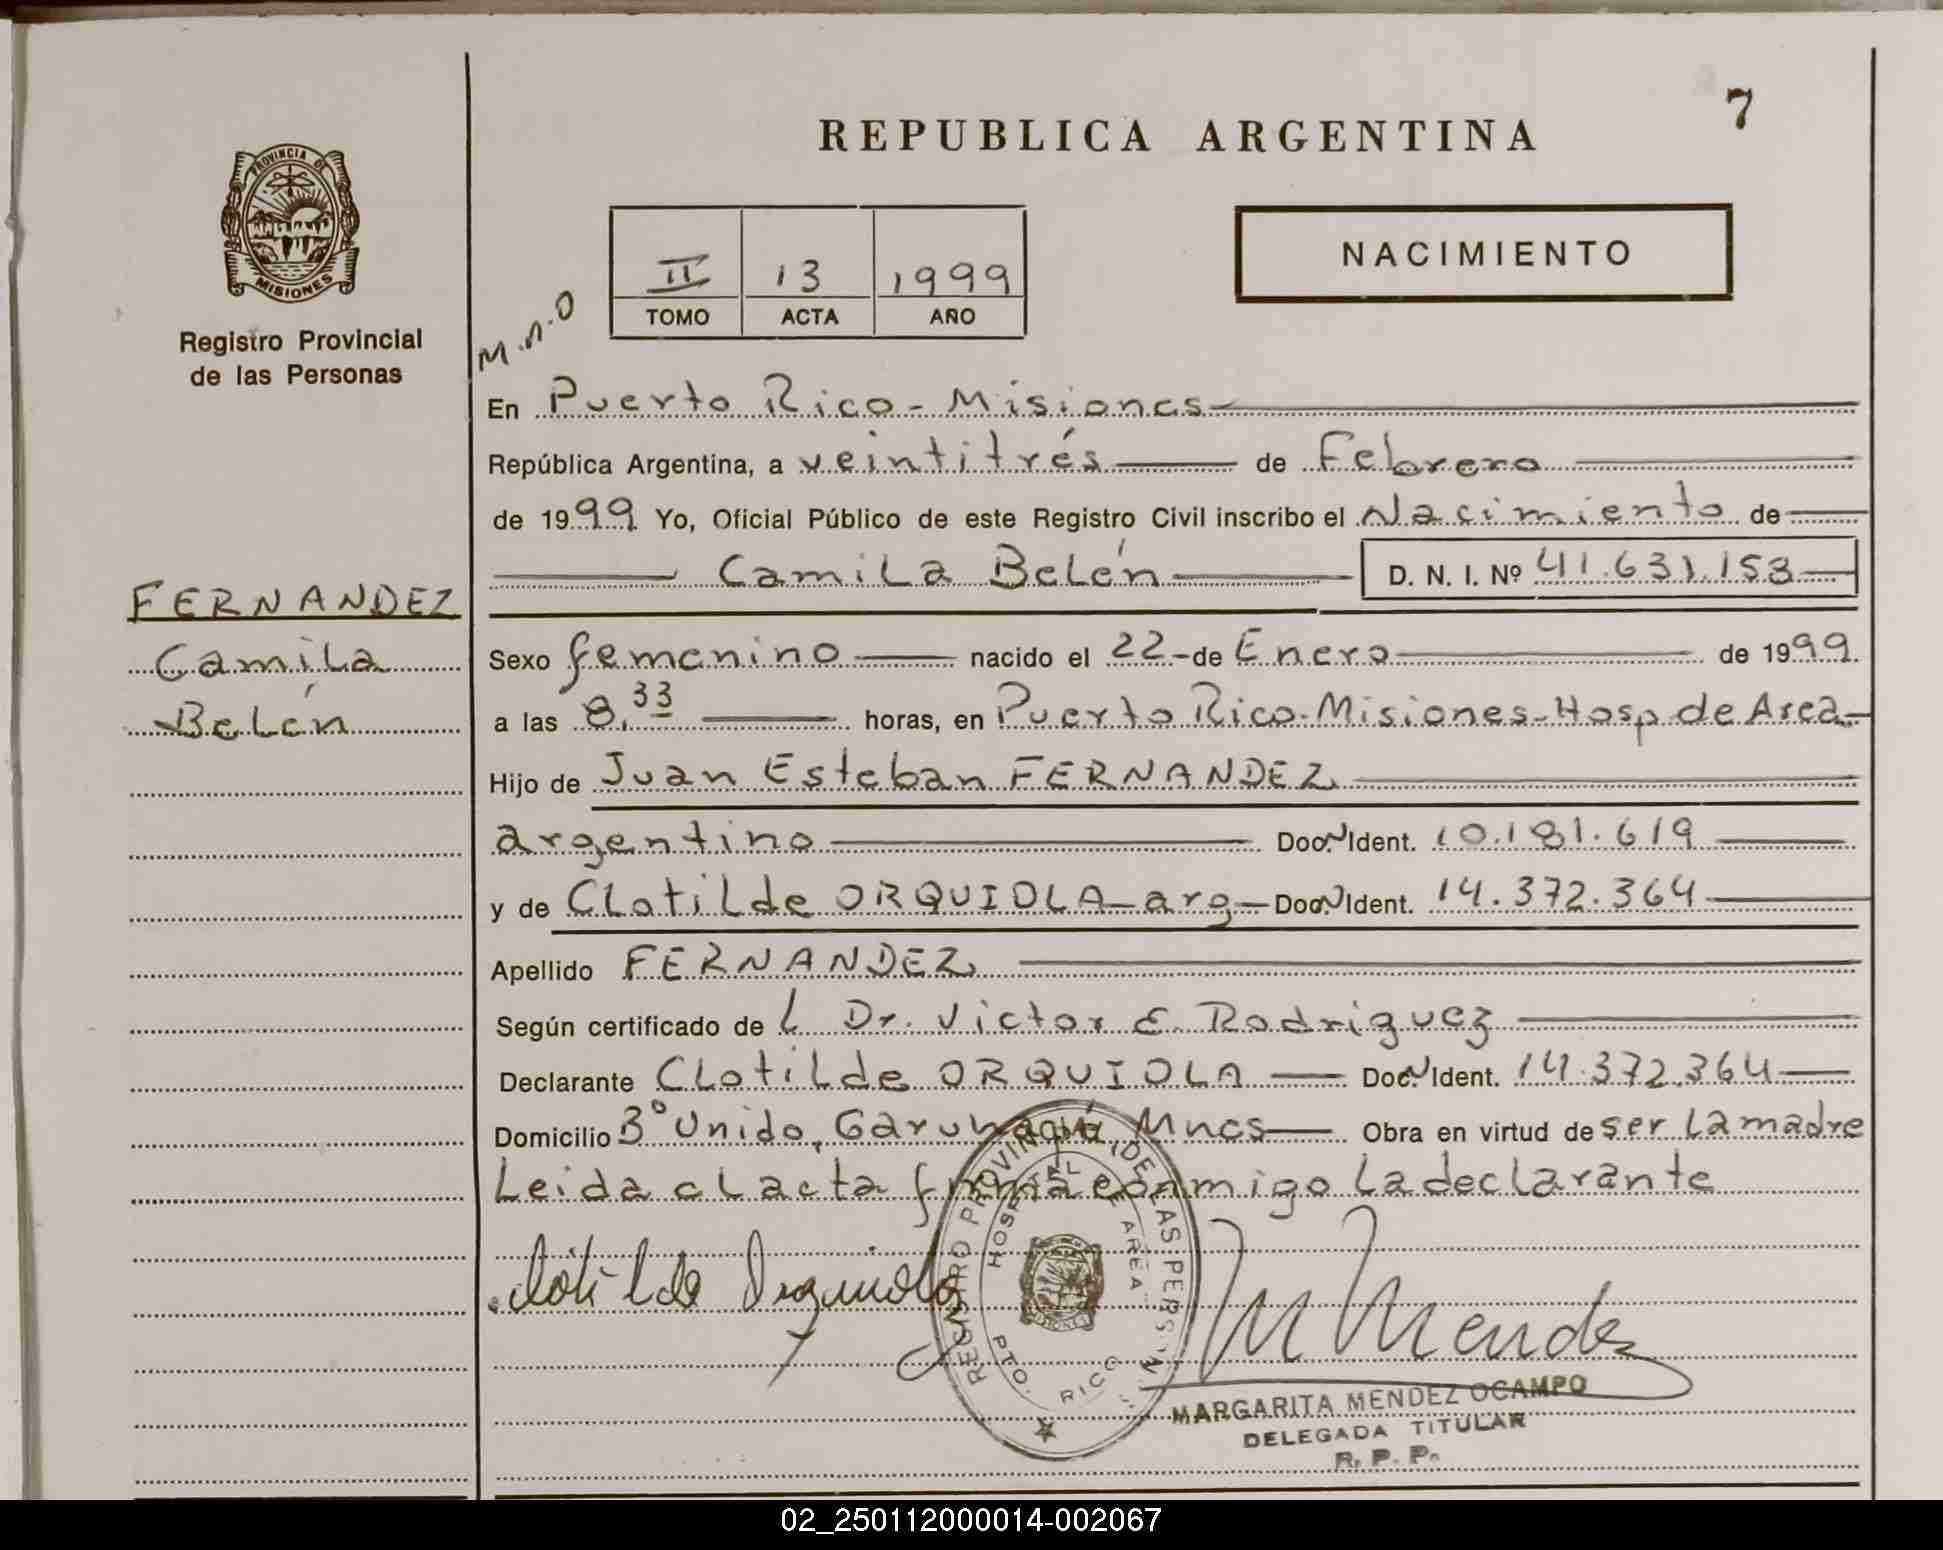 REPUBLICA ARGENTINA
7
PROVINCIA DE
MISIONES
Registro Provincial
de las Personas
II 13 1999
TOMO ACTA AÑO
NACIMIENTO
M.n.o
En Puerto Rico - Misiones
República Argentina, a veintitrés de Febrero
de 1999 Yo, Oficial Público de este Registro Civil inscribo el Nacimiento de
Camila Belén D. N. I. Nº 41.631.153
FERNANDEZ
Camila
Belén
Sexo femenino nacido el 22 - de Enero de 1999
a las 8,33 horas, en Puerto Rico - Misiones - Hosp de Area -
Hijo de Juan Esteban FERNANDEZ
argentino Doc. Ident. 10.181.619
y de Clotilde ORQUIOLA - arg - Doc. Ident. 14.372.364
Apellido FERNANDEZ
Según certificado de L Dr. Victor E. Rodriguez
Declarante Clotilde ORQUIOLA Doc. Ident. 14.372.364
Domicilio 3º Unido, Garuhapé, Mnes Obra en virtud de ser la madre
Leida el acta firma conmigo la declarante
Clotilde Orquiola
REGISTRO PROVINCIAL DE LAS PERSONAS
HOSPITAL DE AREA
PTO. RICO
M Mendez
MARGARITA MENDEZ OCAMPO
DELEGADA TITULAR
R. P. P.
02_250112000014-002067